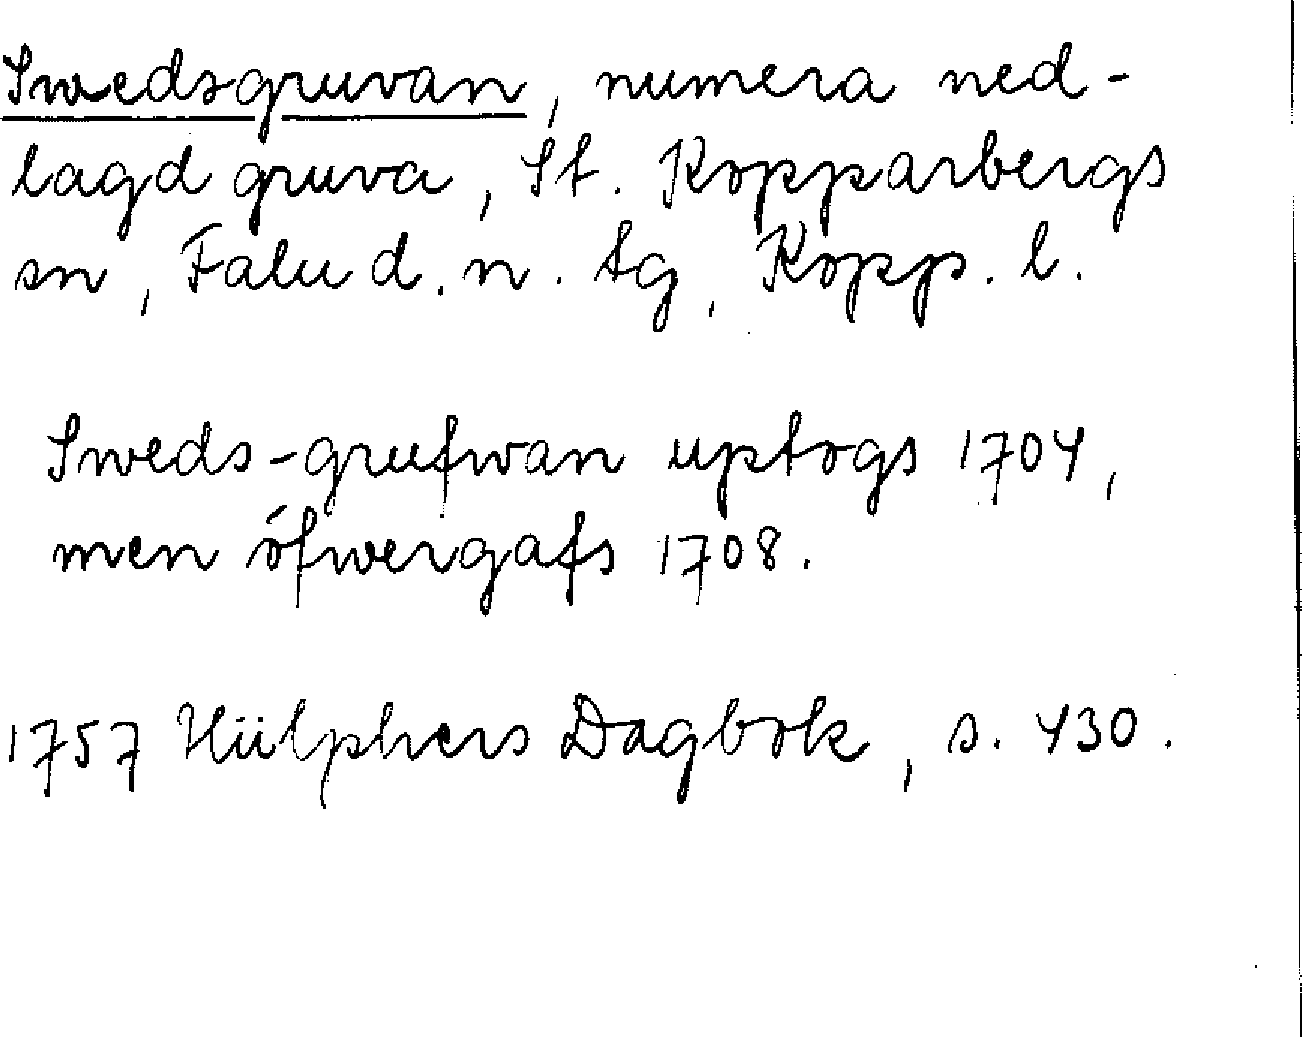 Swedsgruvan, numera ned-
lagd gruva, St. Kopparbergs
sn, Falu d. n. tg, Kopp. l.
Sweds-grufwan uptogs 1704,
men öfwergafs 1708.
1757 Hülphers Dagbok, s. 430.